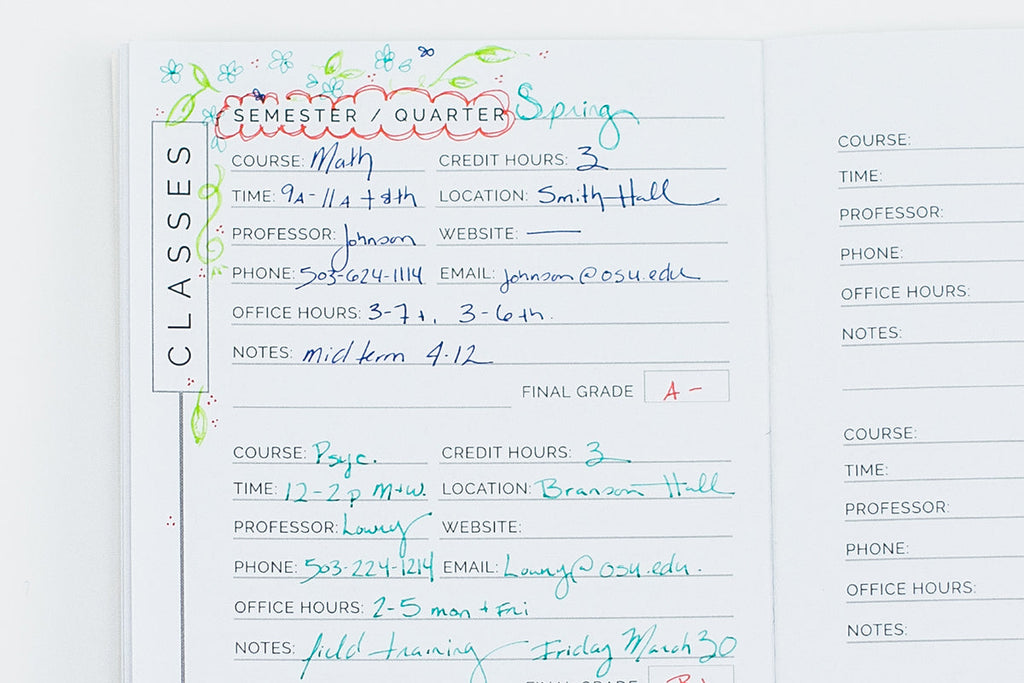 SEMESTER / QUARTER Spring
CLASSES
COURSE: Math CREDIT HOURS: 3
TIME: 9A-11A t+th LOCATION: Smith Hall
PROFESSOR: Johnson WEBSITE: —
PHONE: 503-624-1114 EMAIL: johnson@osu.edu
OFFICE HOURS: 3-7t, 3-6th.
NOTES: midterm 4.12
FINAL GRADE A-
COURSE: Psyc. CREDIT HOURS: 3
TIME: 12-2p M+W. LOCATION: Branson Hall
PROFESSOR: Lowry WEBSITE:
PHONE: 503-224-1214 EMAIL: Lowry@osu.edu.
OFFICE HOURS: 2-5 mon + Fri
NOTES: field training Friday March 30
FINAL GRADE
COURSE:
TIME:
PROFESSOR:
PHONE:
OFFICE HOURS:
NOTES:
COURSE:
TIME:
PROFESSOR:
PHONE:
OFFICE HOURS:
NOTES: